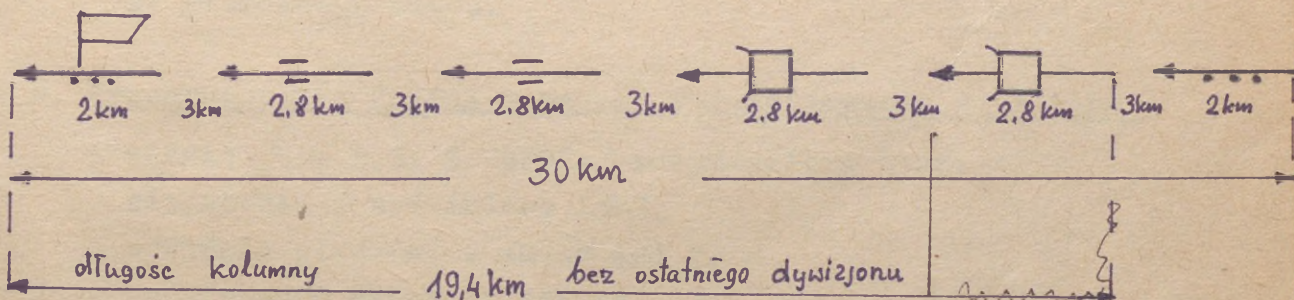 2km 3km 2,8km 3km 2.8km 3km 2.8km 3km 2.8km 3km 2km
30km
długość kolumny 19,4km bez ostatniego dywizjonu